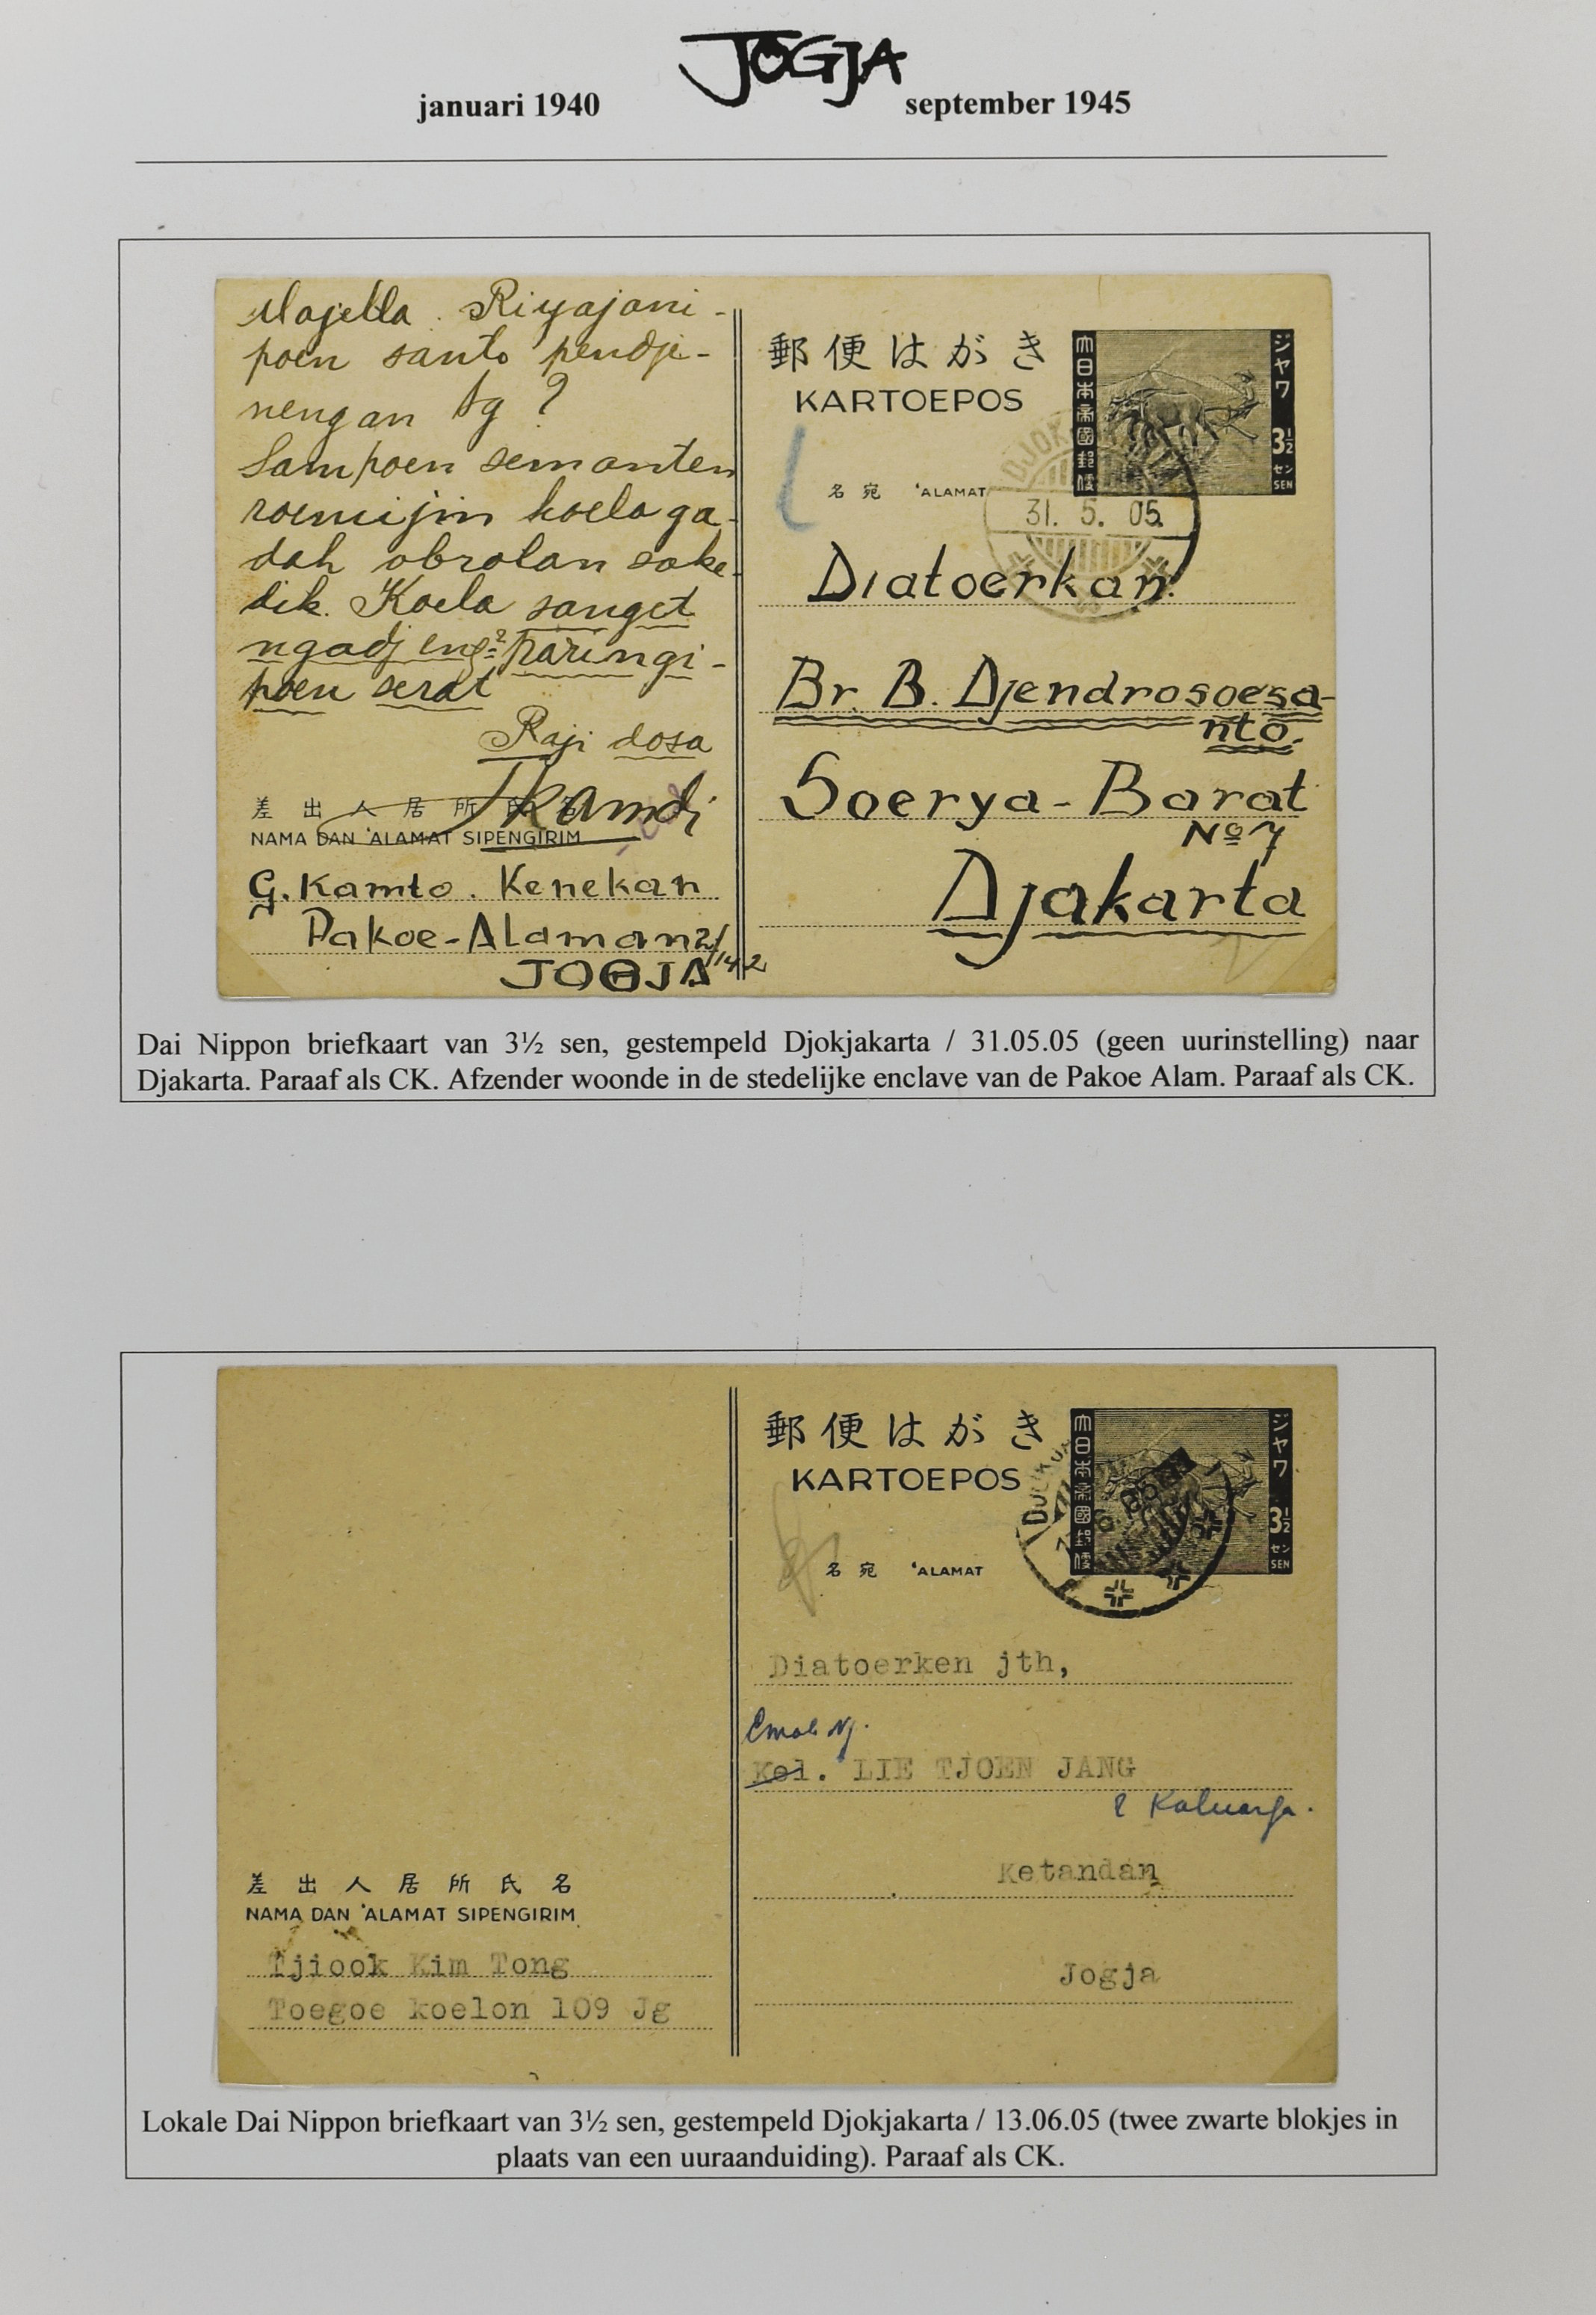 JOGJA
januari 1940 september 1945
Riyajani-
poen santo pendje-
nengan tg ?
Sampoen semanten
roemijin koela ga-
dah obrolan sake-
dik. Koela sanget
ngadjeng² paringi-
poen serat
Raji dosa
Kamdi
差出人居所氏名
NAMA DAN 'ALAMAT SIPENGIRIM
G. Kamto. Kenekan
Pakoe-Alaman
JOGJA
郵便はがき
KARTOEPOS
大日本帝國郵便
ジャワ
3½
セン
SEN
名宛 'ALAMAT
DJOK
31. 5. 05.
Diatoerkan
Br. B. Djendrosoesa-
nto.
Soerya-Barat
No 7
Djakarta
Dai Nippon briefkaart van 3½ sen, gestempeld Djokjakarta / 31.05.05 (geen uurinstelling) naar
Djakarta. Paraaf als CK. Afzender woonde in de stedelijke enclave van de Pakoe Alam. Paraaf als CK.
郵便はがき
KARTOEPOS
大日本帝國郵便
ジャワ
3½
セン
SEN
名宛 'ALAMAT
Diatoerken jth,
Kel. LIE TJOEN JANG
& Kaluarga.
Ketandan
Jogja
差出人居所氏名
NAMA DAN 'ALAMAT SIPENGIRIM
Tjiook Kim Tong
Toegoe koelon 109 Jg
Lokale Dai Nippon briefkaart van 3½ sen, gestempeld Djokjakarta / 13.06.05 (twee zwarte blokjes in
plaats van een uuraanduiding). Paraaf als CK.